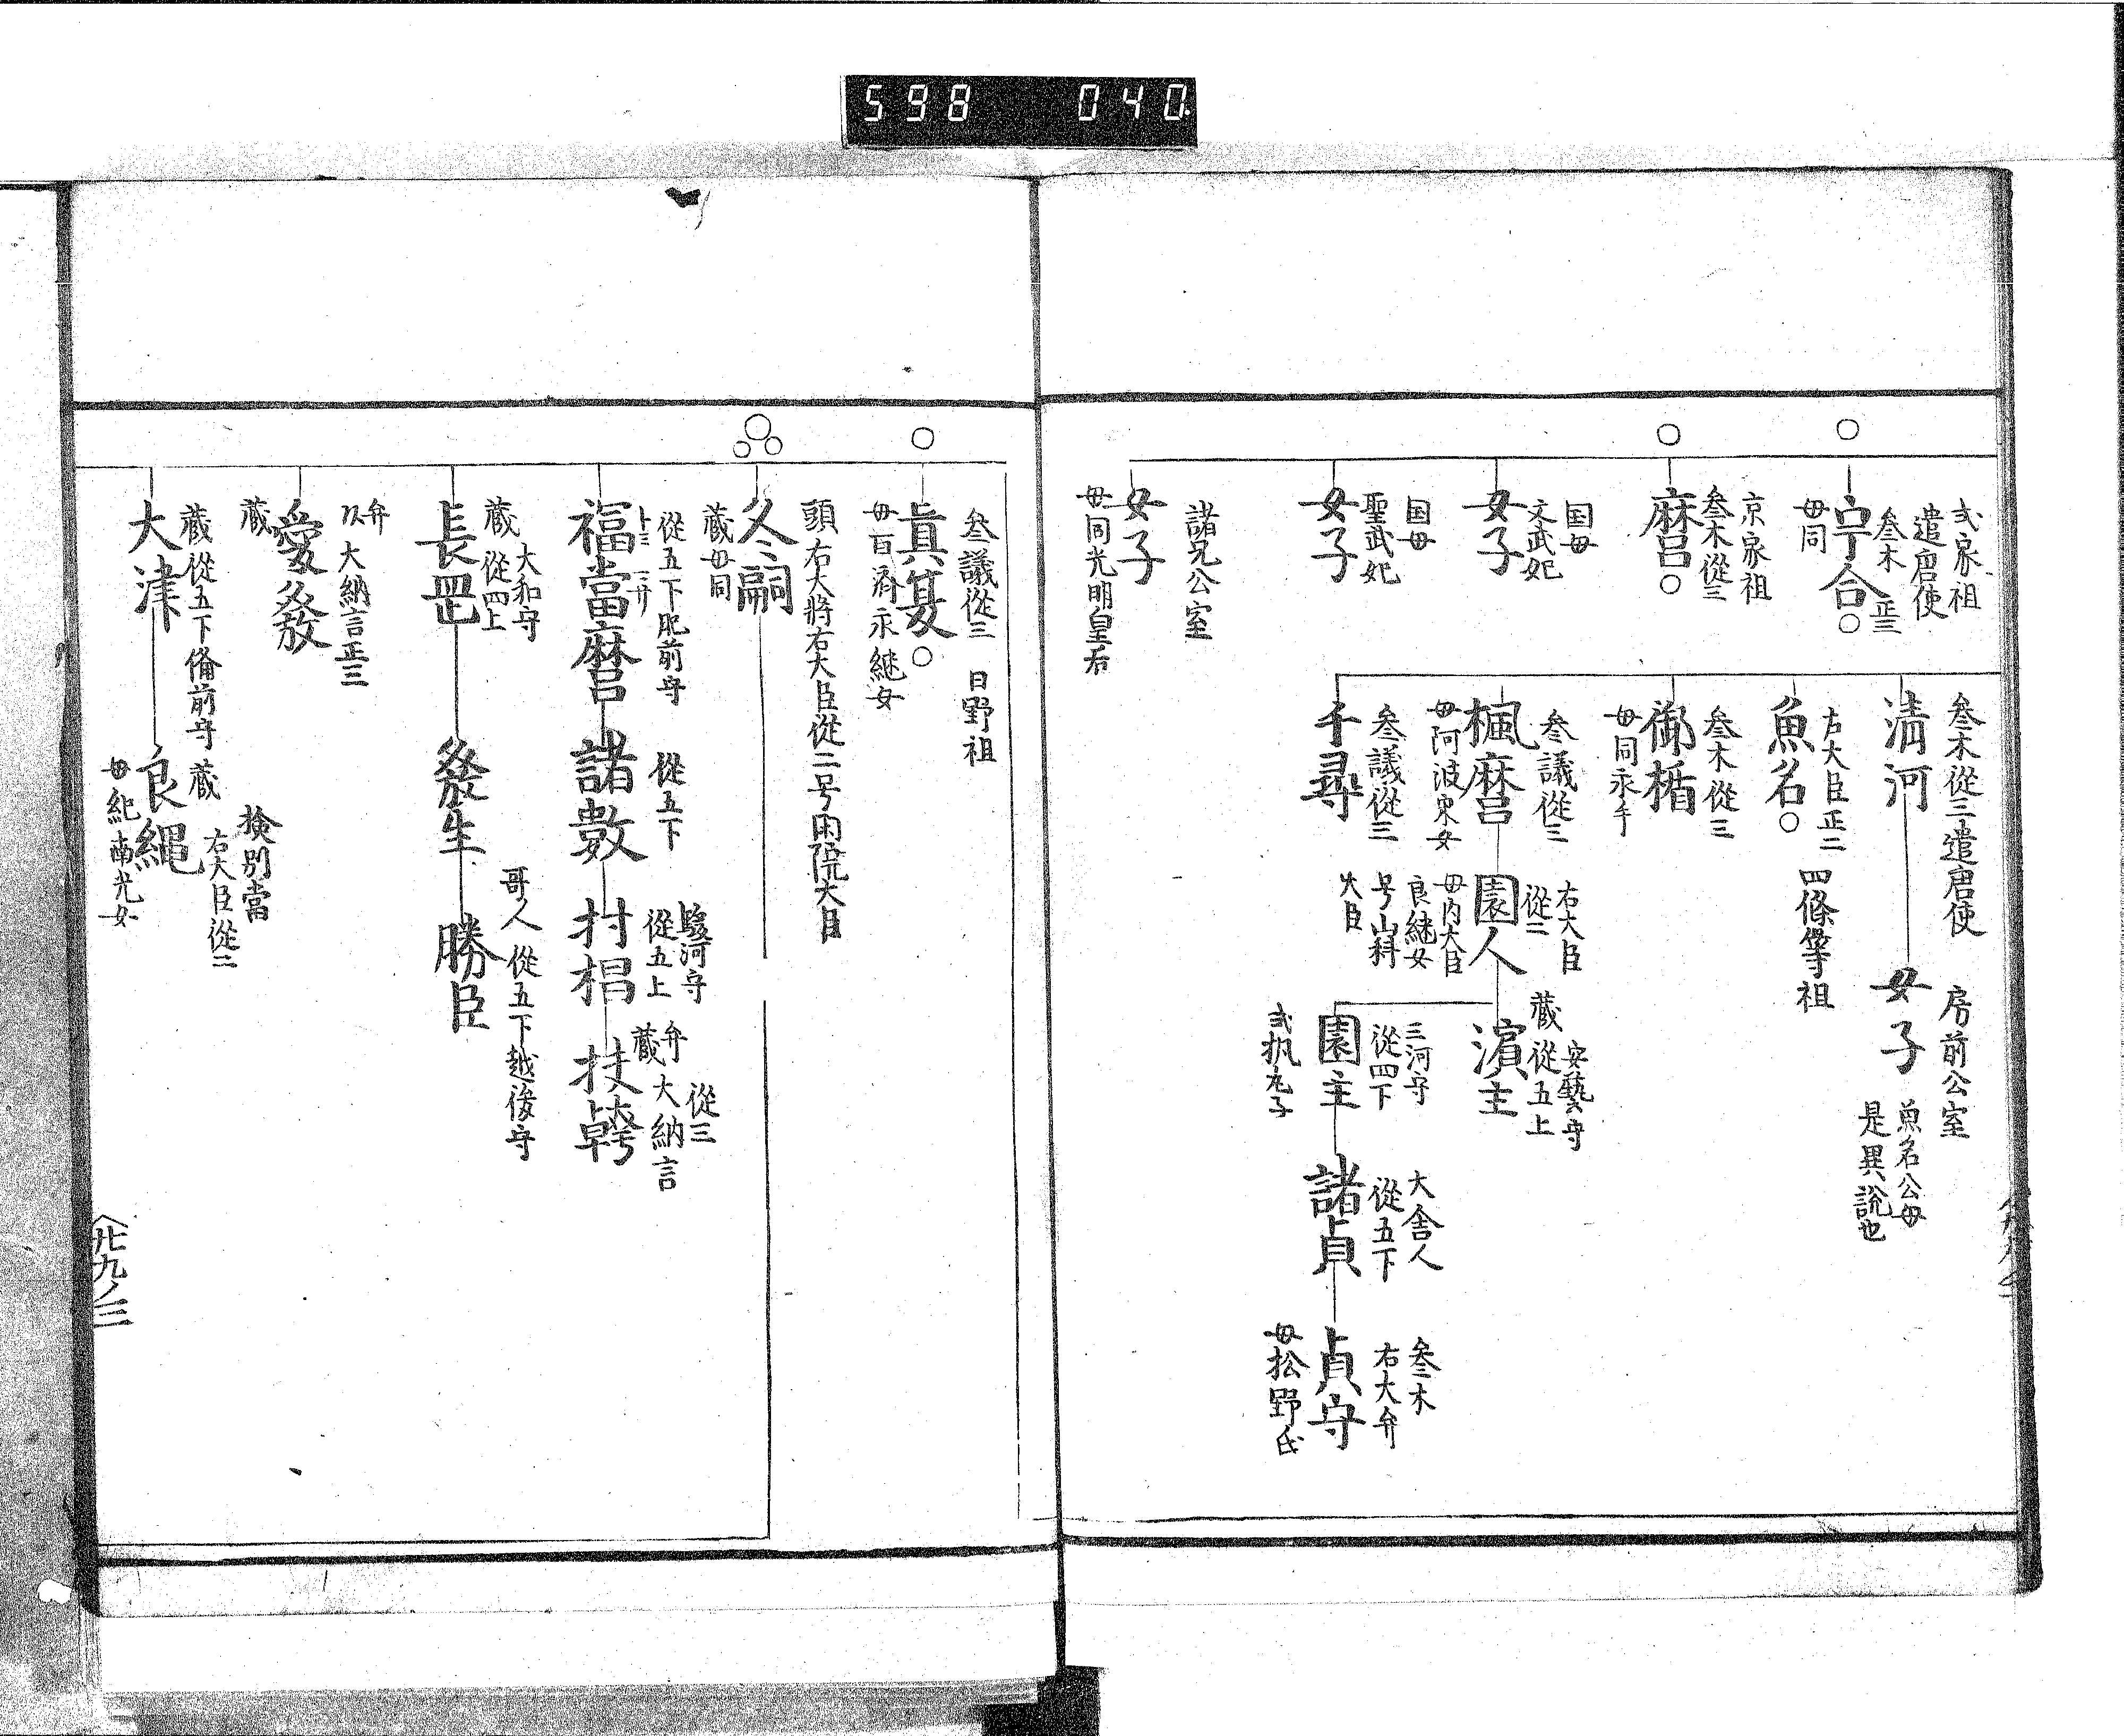 598 040
式家祖
遣唐使
叄木 正三
宇合○
母同
京家祖
叄木從三
麿○
国母
文武妃
女子
国母
聖武妃
女子
諸兄公室
女子
母同光明皇后
叄木從三遣唐使
清河
房前公室
女子
魚名公母
是異説也
左大臣正二
魚名○
四條等祖
叄木從三
御楯
母同永手
叄議從三
楓麿
母阿波采女
右大臣
從二
園人
母内大臣
良継女
号山科
大臣
安藝守
藏 從五上
濱主
三河守
從四下
園主
大舎人
從五下
諸貞
叄木
右大弁
貞守
母松野氏
叄議從三
千尋
叄議從三 日野祖
眞夏○
母百済永継女
頭右大將右大臣從二号閑院大臣
冬嗣
藏母同
從五下肥前守
福當麿
從五下
諸數
駿河守
從五上
村椙
從三
弁 大納言
藏
扶幹
大和守
藏 從四上
長罡
發生
哥人 從五下越後守
勝臣
弁 大納言正三
愛發
藏
藏從五下俻前守
大津
檢別當
藏 右大臣從二
良繩
母紀南光女
廿九ノ三